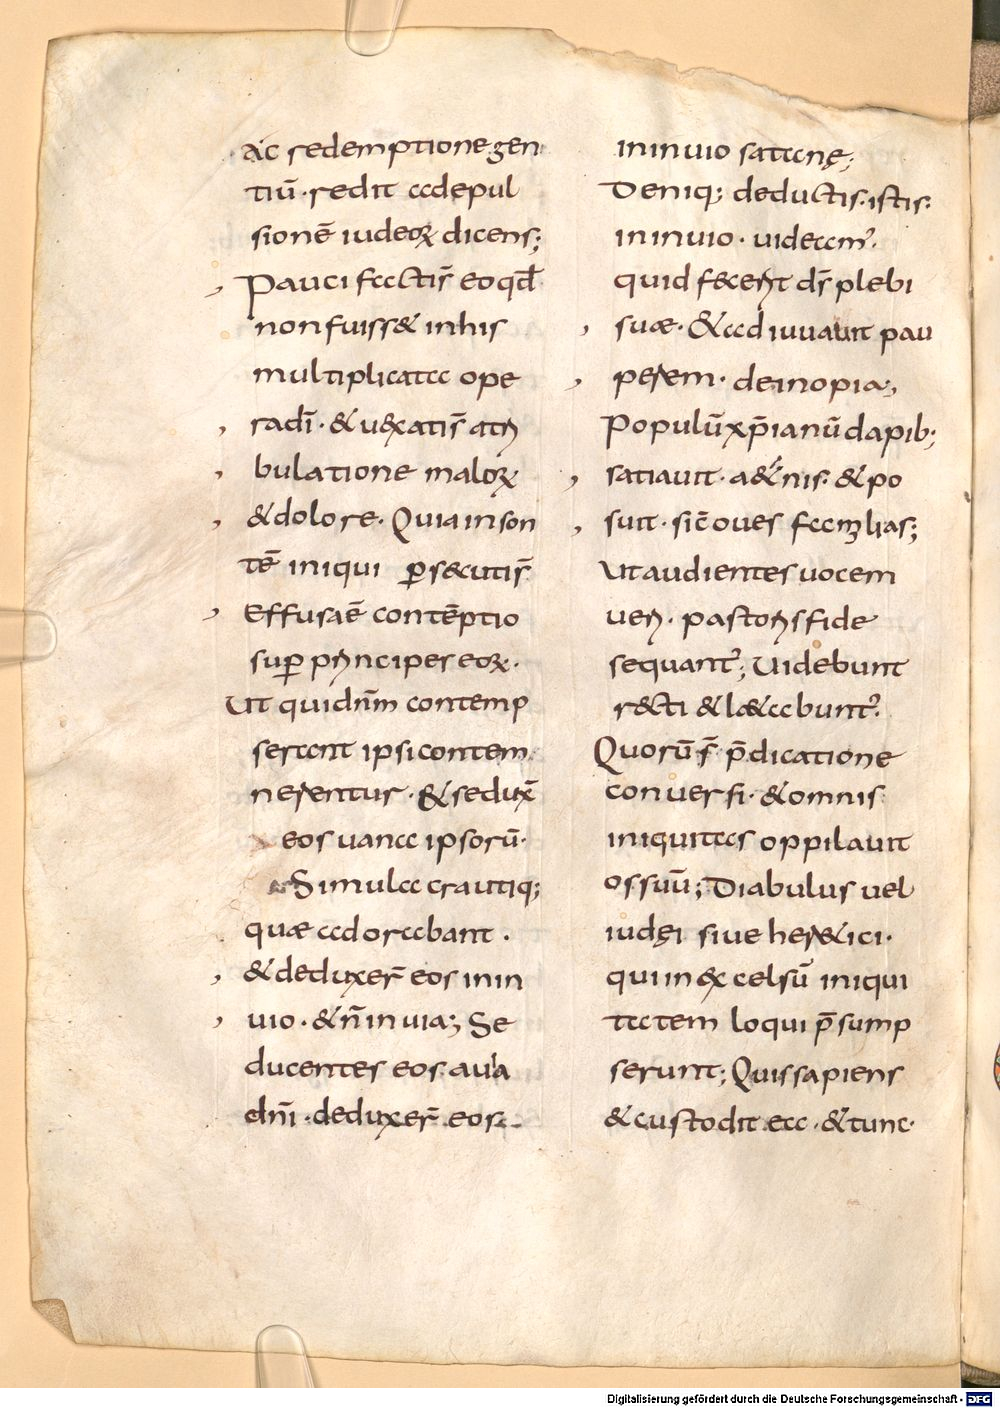 ac redemptione gen
tiū· redit ad depul
sionē iudeoꝝ dicens;
Pauci facti s̄ eo qd̄
non fuiss& in his
multiplicata ope
ra dī· & uexatis̄ a tri
bulatione maloꝝ
& dolore· Quia inson
tē iniqui ꝑsecuti s̄
Effusa ē contēptio
suꝑ principes eoꝝ·
Ut quidnm̄ contemp
serant ipsi contem
nerentur· & sedux̄
eos uana ipsorū·
Simulacra utiq;
quæ adorabant·
& deduxer̄ eos in in
uio· & n̄ in uia; Se
ducentes eos a uia
dn̄i· deduxer̄ eos
in inuio satanę;
Deniq; deductis· istis·
in inuio· uideam̉·
quid fecerit ds̄ plebi
suæ· & adiuuauit pau
perem· de inopia;
Populū xp̄ianū dapib;
satiauit· a&ernis· & po
suit· sic̄ oues familias;
Ut audientes uocem
ueri· pastoris fide
sequant̉; Uidebunt
recti & læ&abunt̉·
Quorū s̄ p̄dicatione
conuersi· & omnis
iniquitas oppilauit
os suū; Diabulus uel
iudęi siue her&ici·
qui in excelsū iniqui
tatem loqui p̄sump
serunt; Quis sapiens
& custodit ea· & tunc·
Digitalisierung gefördert durch die Deutsche Forschungsgemeinschaft - DFG